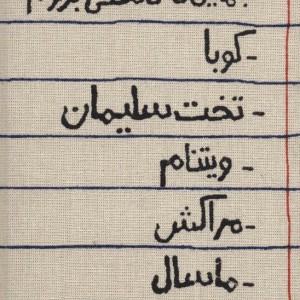 - کوبا
- تخت سلیمان
- ویتنام
- مراکش
- ماسال